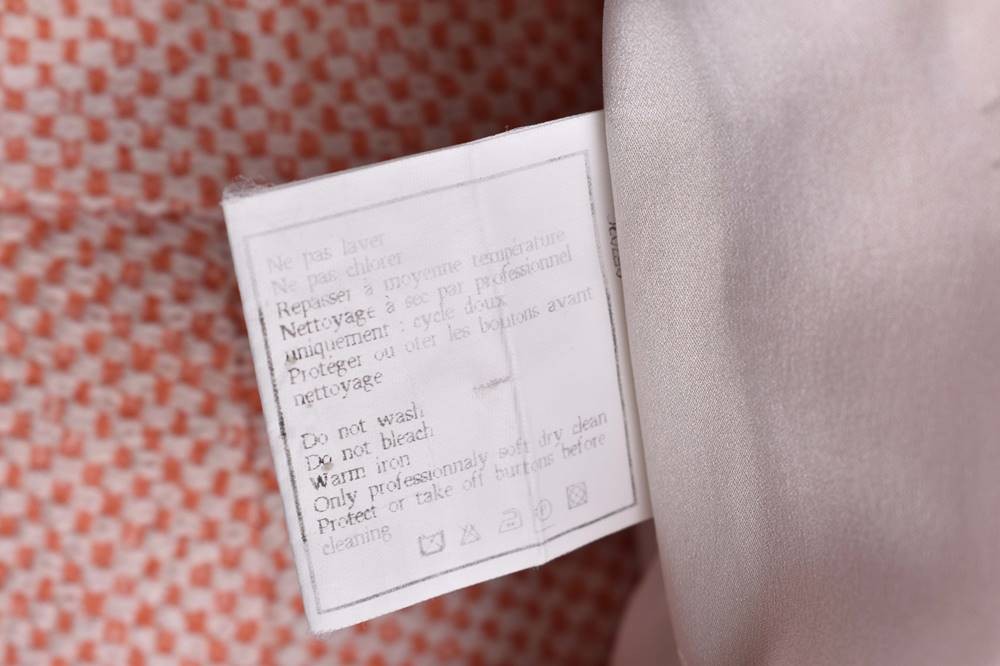 Ne pas laver
Ne pas chlorer
Repasser à moyenne température
Nettoyage à sec par professionnel
uniquement : cycle doux
Protéger ou oter les boutons avant
nettoyage
Do not wash
Do not bleach
Warm iron
Only professionnaly soft dry clean
Protect or take off buttons before
cleaning